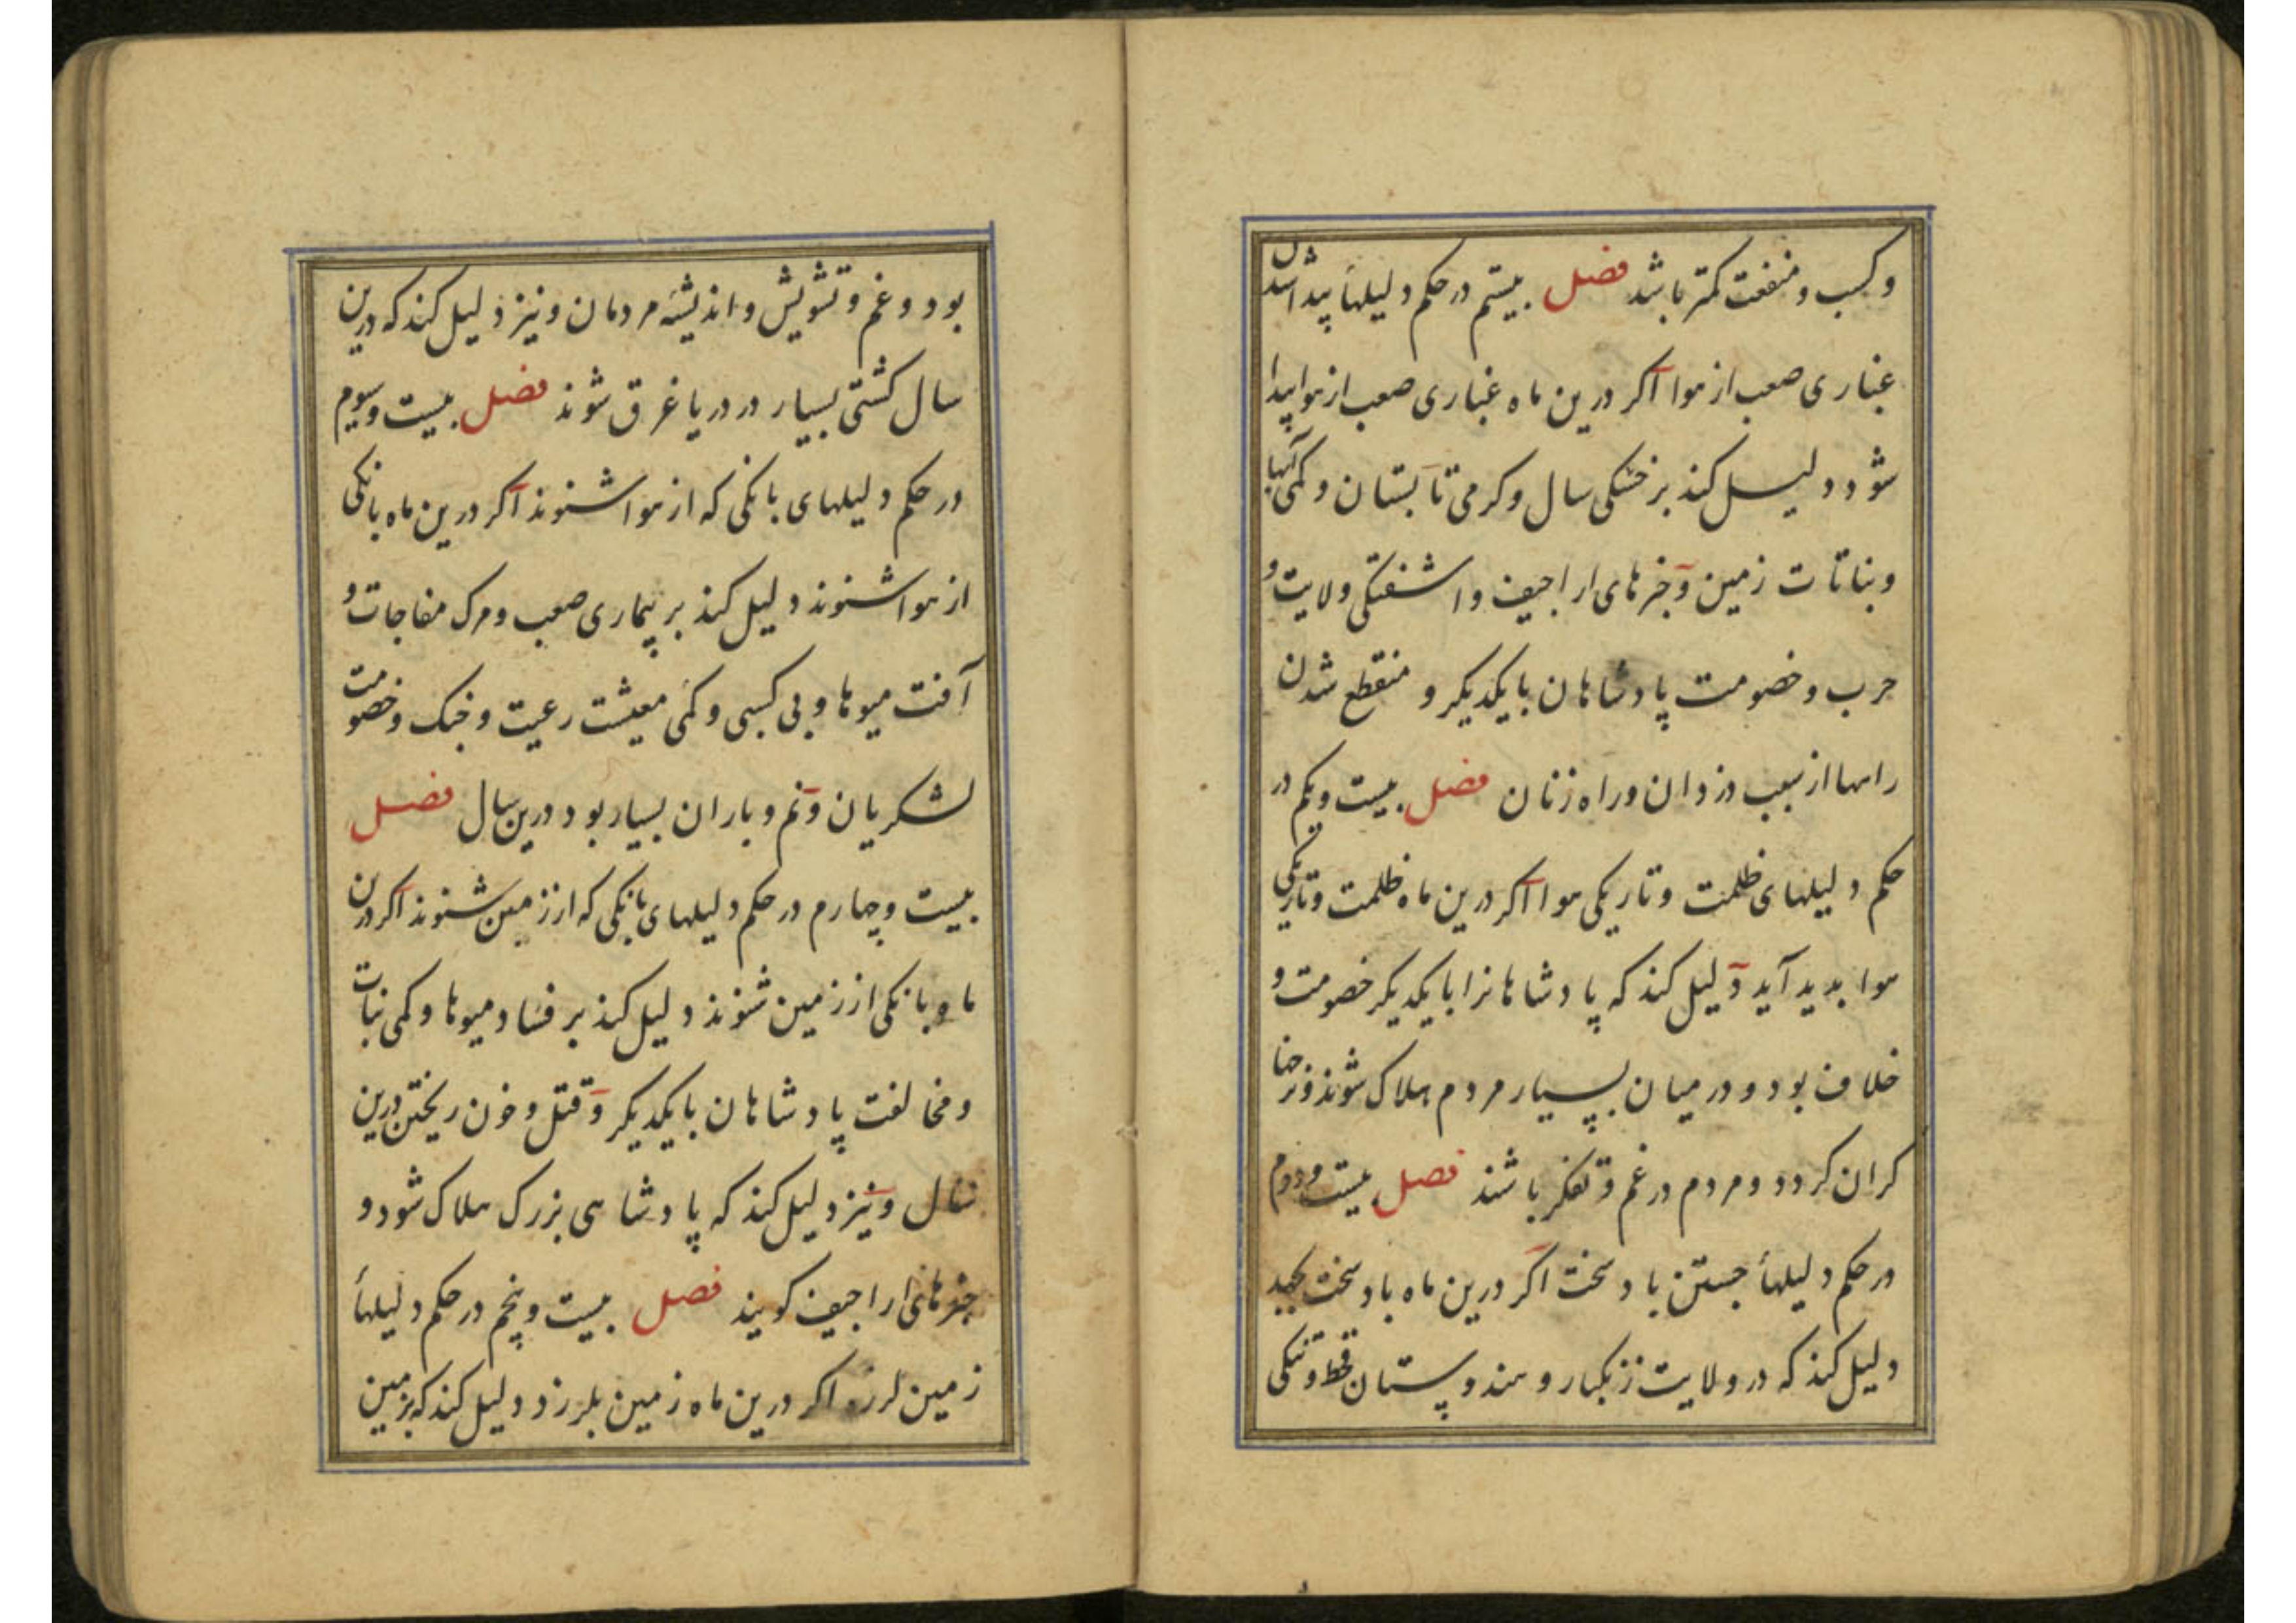 و کسب و منفعت کمتر باشد فصل بیستم در حکم دلیلهأ پیدا شدن
غباری صعب از هوا اکر درین ماه غباری صعب از هوا پیدا
شود دلیل کند بر خشکی سال و کرمی تابستان و کمی آبها
و بناتات زمین و خبرهای اراجیف و اشفتکی ولایت و
حرب و خصومت پادشاهان با یکدیکر و منقطع شدن
راهها از سبب دزدان و راه زنان فصل بیست و یکم در
حکم دلیلهای ظلمت و تاریکی هوا اکر درین ماه ظلمت و تاریکی
هوا بدید آید دلیل کند که پادشاهانرا با یکدیکر خصومت و
خلاف بود و در میان بسیار مردم هلاک شوند و نرخها
کران کردد و مردم در غم و تفکر باشند فصل بیست و دوم
در حکم دلیلهأ جستن باد سخت اکر درین ماه باد سخت بجهد
دلیل کند که در ولایت زنکبار و هندوستان قحط و تنکی
بود و غم و تشویش و اندیشه مردمان و نیز دلیل کند که درین
سال کشتی بسیار در دریا غرق شوند فصل بیست و سیوم
در حکم دلیلهای بانکی که از هوا شنوند اکر درین ماه بانکی
از هوا شنوند دلیل کند بر بیماری صعب و مرک مفاجات و
آفت میوها و بی کسبی و کمی معیشت رعیت و جنک و خصومت
لشکریان و نم و باران بسیار بود درین سال فصل
بیست و چهارم در حکم دلیلهای بانکی که از زمین شنوند اکر درین
ماه بانکی از زمین شنوند دلیل کند بر فساد میوها و کمی نبات
و مخالفت پادشاهان با یکدیکر و قتل و خون ریختن درین
سال و نیز دلیل کند که پادشاهی بزرک هلاک شود و
خبرهای اراجیف کویند فصل بیست و پنجم در حکم دلیلهأ
زمین لرزه اکر درین ماه زمین بلرزد دلیل کند که بزمین